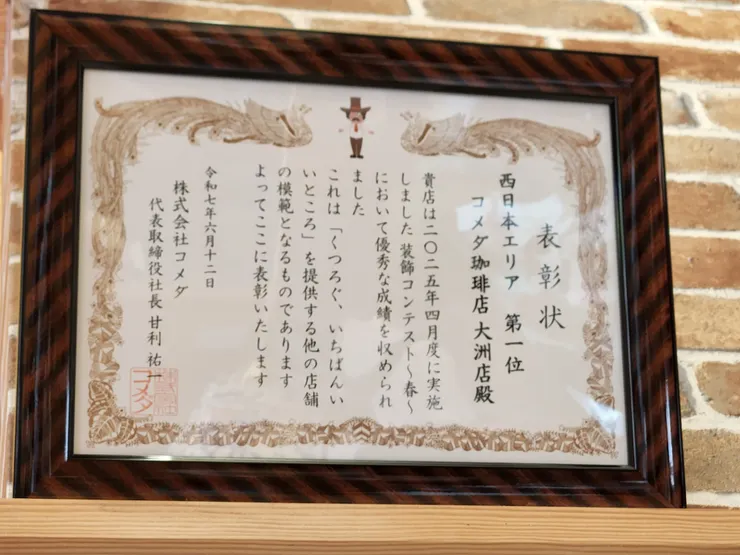 表彰状
西日本エリア 第一位
コメダ珈琲店 大洲店殿
貴店は二〇二五年四月度に実施
しました装飾コンテスト〜春〜
において優秀な成績を収められ
ました
これは「くつろぐ、いちばんい
いところ」を提供する他の店舗
の模範となるものであります
よってここに表彰いたします
令和七年六月十二日
株式会社コメダ
代表取締役社長 甘利 祐一
コメダ